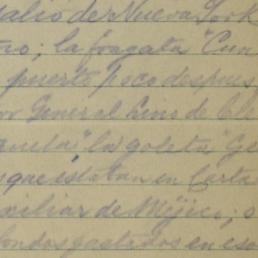 salio de Nueva York
tro; la fragata "Cun
puerto poco despues
General Lino de Cle
la goleta "Ge
que estaban en Carta
xiliar de Méjico; o
fondos gastados en eso